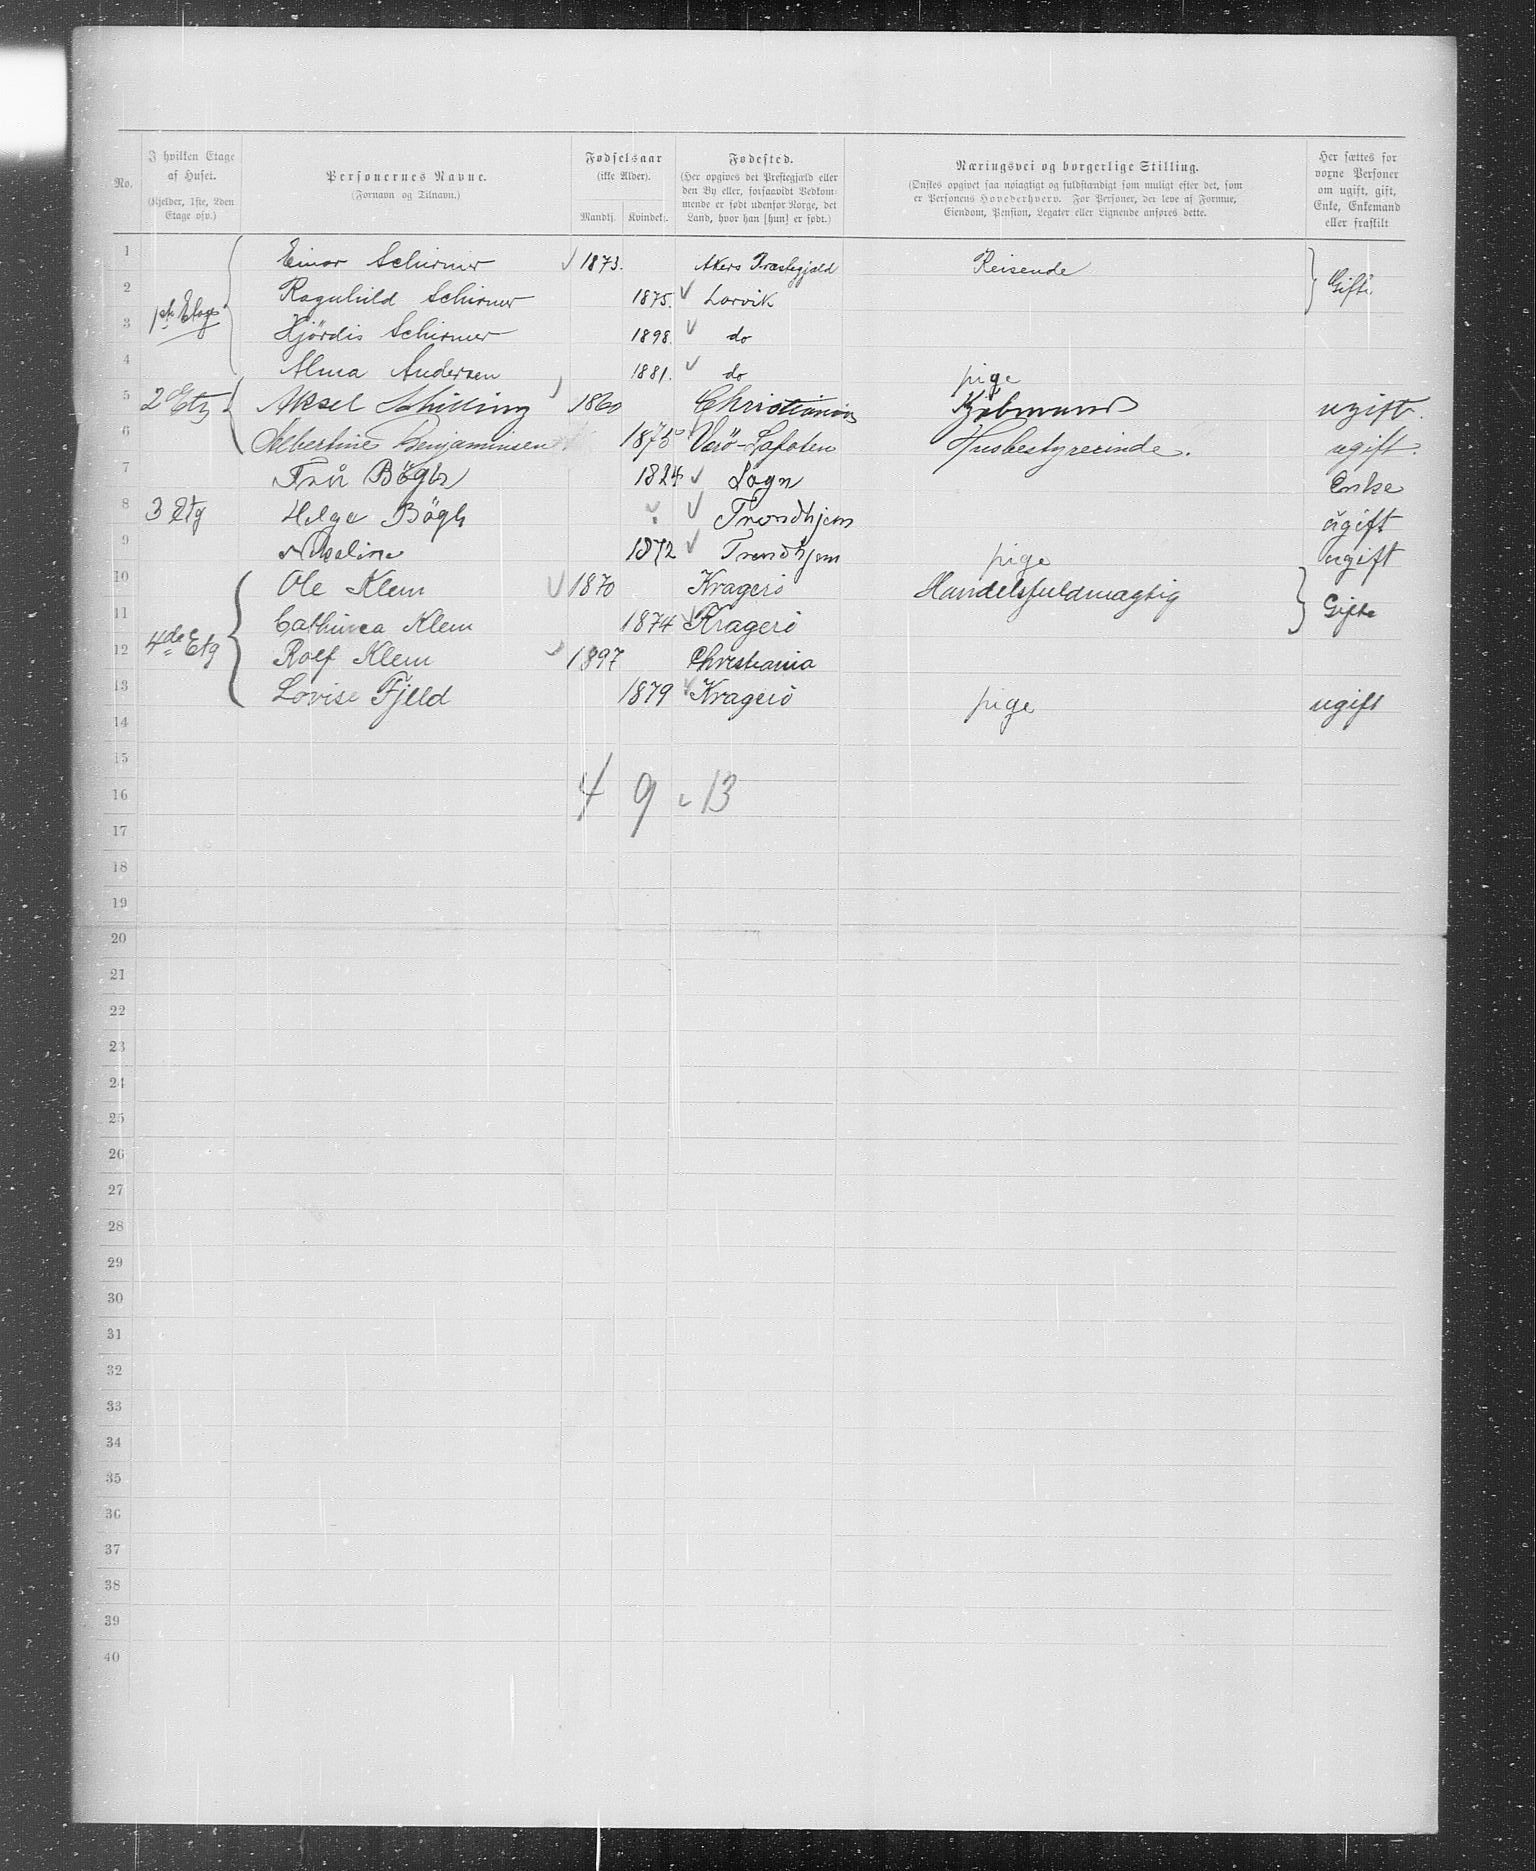 No.
I hvilken Etage af Huset.
(Kjelder, 1ste, 2den Etage osv.)
Personernes Navne.
(Fornavn og Tilnavn.)
Fødselsaar
(ikke Alder).
Mandkj. Kvindekj.
Fødested.
(Her opgives det Prestegjæld eller
den By eller, forsaavidt Vedkom-
mende er født udenfor Norge, det
Land, hvor han [hun] er født.)
Næringsvei og borgerlige Stilling.
(Ønskes opgivet saa nøiagtigt og fuldstændigt som muligt efter det, som
er Personens Hovederhverv. For Personer, der leve af Formue,
Eiendom, Pension, Legater eller Lignende anføres dette.
Her sættes for
vorne Personer
om ugift, gift,
Enke, Enkemand
eller fraskilt
1 Einar Schirmer 1873. Akers Præstegjæld Reisende Gifte.
2 Ragnhild Schirmer 1875. Larvik
3 1ste Etage Hjördis Schirmer 1898. do
4 Alma Andersen 1881. do pige
5 2 Etg Aksel Schilling 1860 Christiania Kjøbmand ugift.
6 Albertine Benjaminsen 1875 Værö-Lofoten Husbestyrerinde. ugift.
7 Frú Bögh 1824 Sogn Enke
8 3 Etg Helga Bögh Trondhjem ugift
9 1872 Trondhjem pige ugift
10 Ole Klem 1870 Kragerö Handelsfuldmægtig Gifte
11 Cathinca Klem 1874 Kragerö
12 4de Etg Rolf Klem 1897 Christiania
13 Lovise Fjeld 1879 Kragerö pige ugift
14
15
16 4 9 = 13
17
18
19
20
21
22
23
24
25
26
27
28
29
30
31
32
33
34
35
36
37
38
39
40